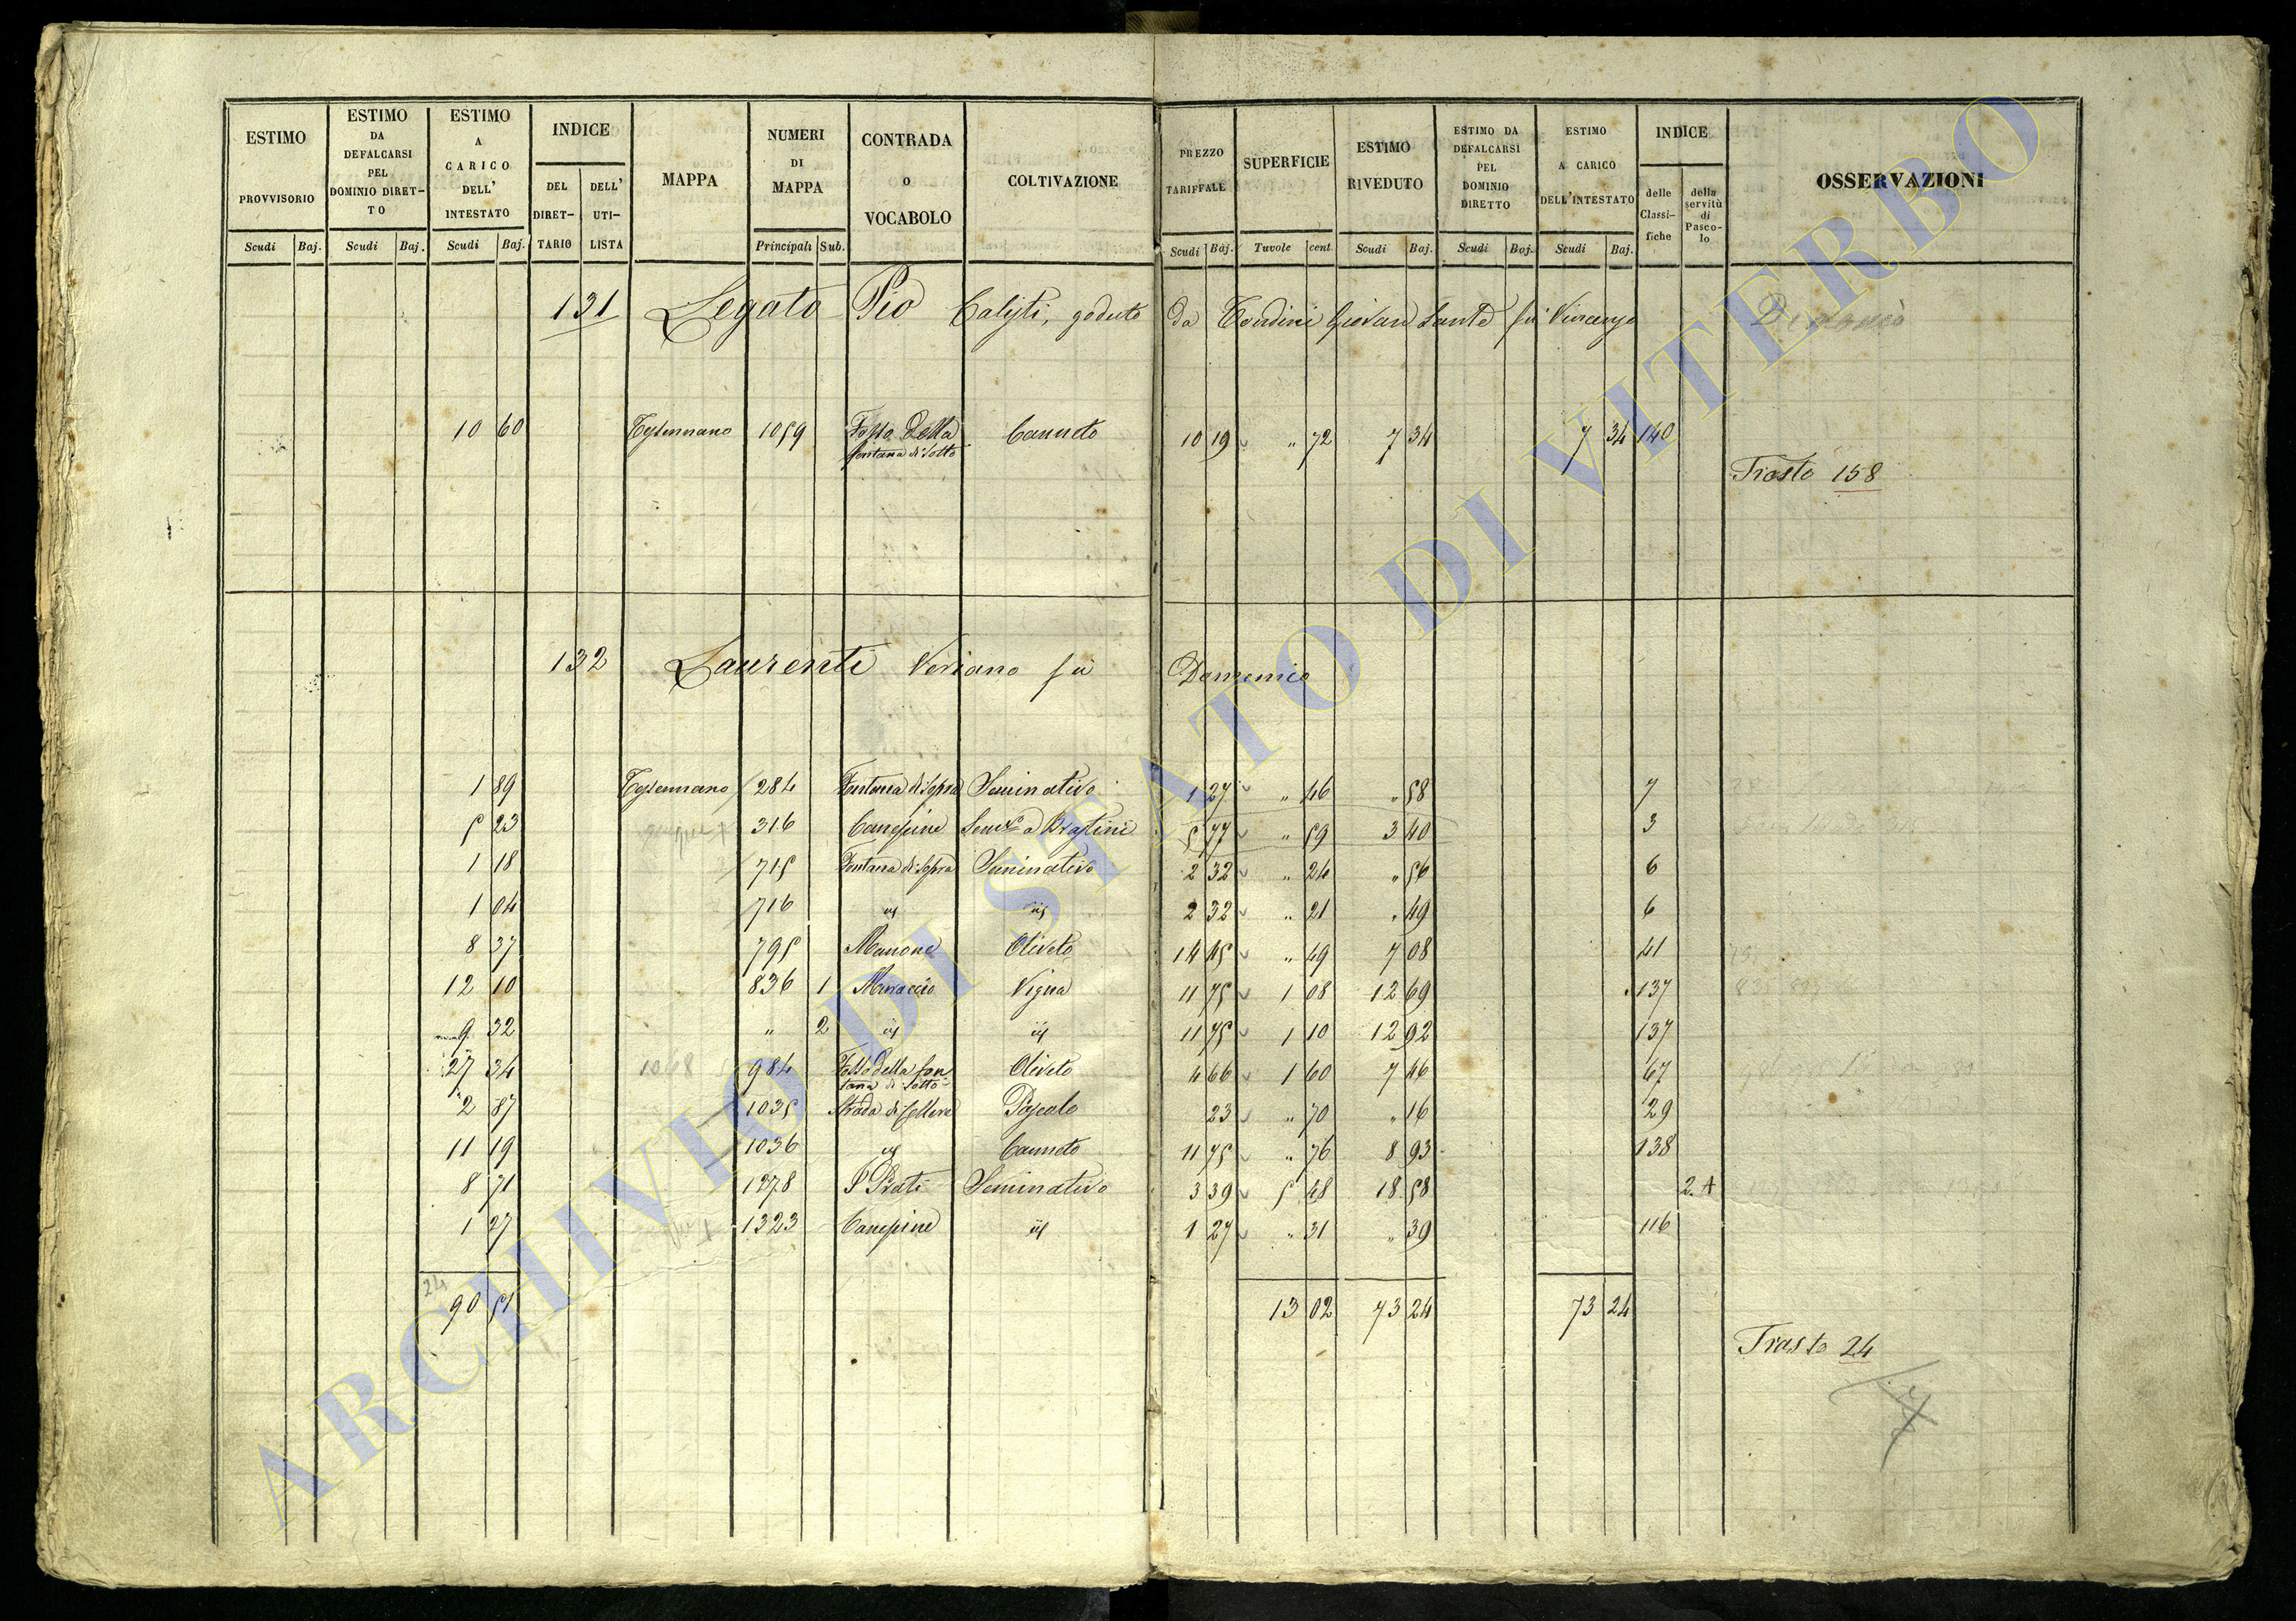 ESTIMO PROVVISORIO
ESTIMO DA DEFALCARSI PEL DOMINIO DIRET-TO
ESTIMO A CARICO DELL' INTESTATO
INDICE
DEL DIRET-TARIO
DELL' UTI-LISTA
MAPPA
NUMERI DI MAPPA
CONTRADA O VOCABOLO
COLTIVAZIONE
PREZZO TARIFFALE
SUPERFICIE
ESTIMO RIVEDUTO
ESTIMO DA DEFALCARSI PEL DOMINIO DIRETTO
ESTIMO A CARICO DELL'INTESTATO
INDICE
delle Classi-fiche
della servitù di Pasco-lo
OSSERVAZIONI
Scudi Baj. Scudi Baj. Scudi Baj. Principali Sub. Scudi Baj. Tavole cent. Scudi Baj. Scudi Baj. Scudi Baj.
131 Legato Pio Calisti, goduto da Giovan Sante fù Vincenzo
10 60 Tessennano 1059 Fosso Della fontana di Sotto Canneto 10 19 " 72 7 34 7 34 140
Trasto 158
132 Laurenti Veriano fù Domenico
1 89 Tessennano 284 Fontana di Sopra Seminativo 1 27 " 46 " 58 7
5 23 316 Canepine Semvo a Prastini 5 77 " 59 3 40 3
1 18 715 Fontana di Sopra Seminativo 2 32 " 24 " 56 6
1 04 716 id id 2 32 " 21 " 49 6
8 37 795 Manone Oliveto 14 45 " 49 7 08 41
12 10 836 1 Murraccio Vigna 11 75 1 08 12 69 137
9 32 " 2 id id 11 75 1 10 12 92 137
27 34 984 Fosso della fontana di Sotto Oliveto 4 66 1 60 7 46 67
2 87 1035 Strada di Cellere Pascolo 23 " 70 " 16 29
11 19 1036 id Canneto 11 75 " 76 8 93 138
8 71 1278 I Prati Seminativo 3 39 5 48 18 58 2. A
1 27 1323 Canepine id 1 27 " 31 " 39 116
24
90 51 13 02 73 24 73 24
Trasto 24
ARCHIVIO DI STATO DI VITERBO